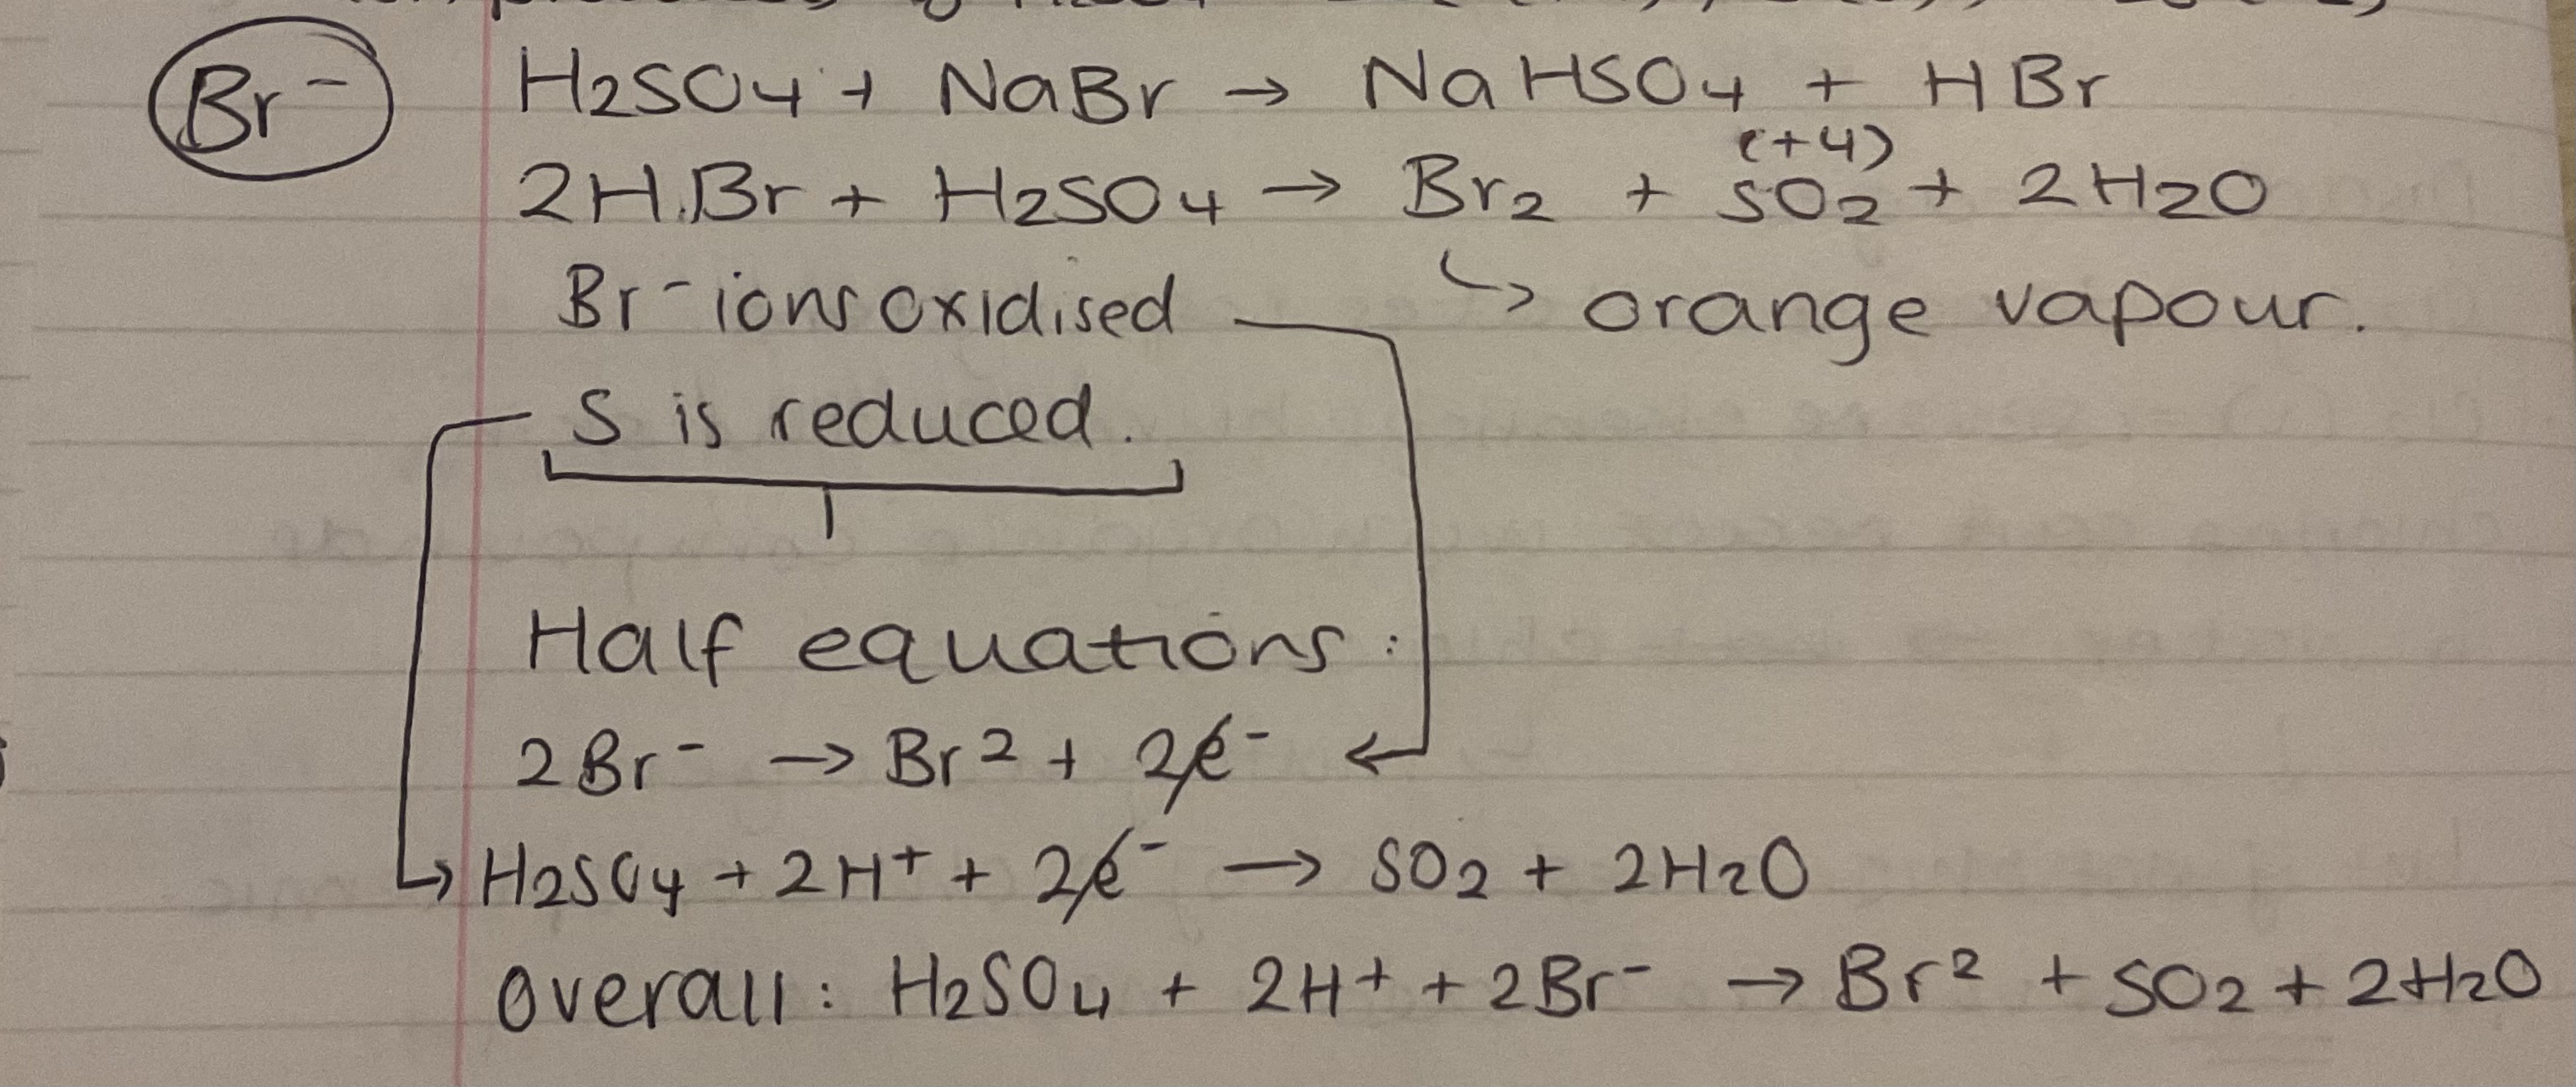 Br⁻ H₂SO₄ + NaBr → NaHSO₄ + HBr
(+4)
2HBr + H₂SO₄ → Br₂ + SO₂ + 2H₂O
Br⁻ ions oxidised ↳ orange vapour.
S is reduced.
Half equations:
2Br⁻ → Br² + 2e⁻
H₂SO₄ + 2H⁺ + 2e⁻ → SO₂ + 2H₂O
Overall: H₂SO₄ + 2H⁺ + 2Br⁻ → Br² + SO₂ + 2H₂O